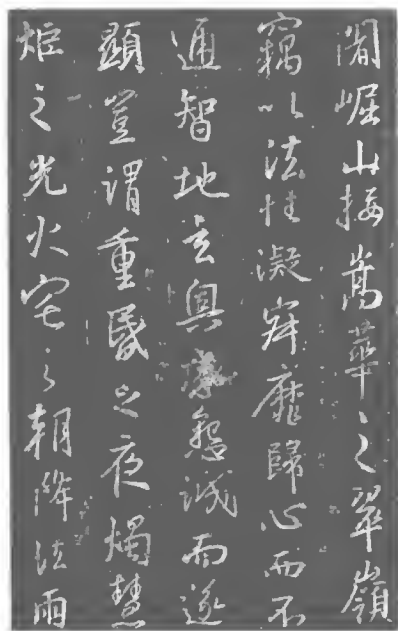 闍崛山接嵩華之翠嶺
竊以法性凝寂靡歸心而不
通智地玄奧感懇誠而遂
顯豈謂重昏之夜燭慧
炬之光火宅之朝降法雨